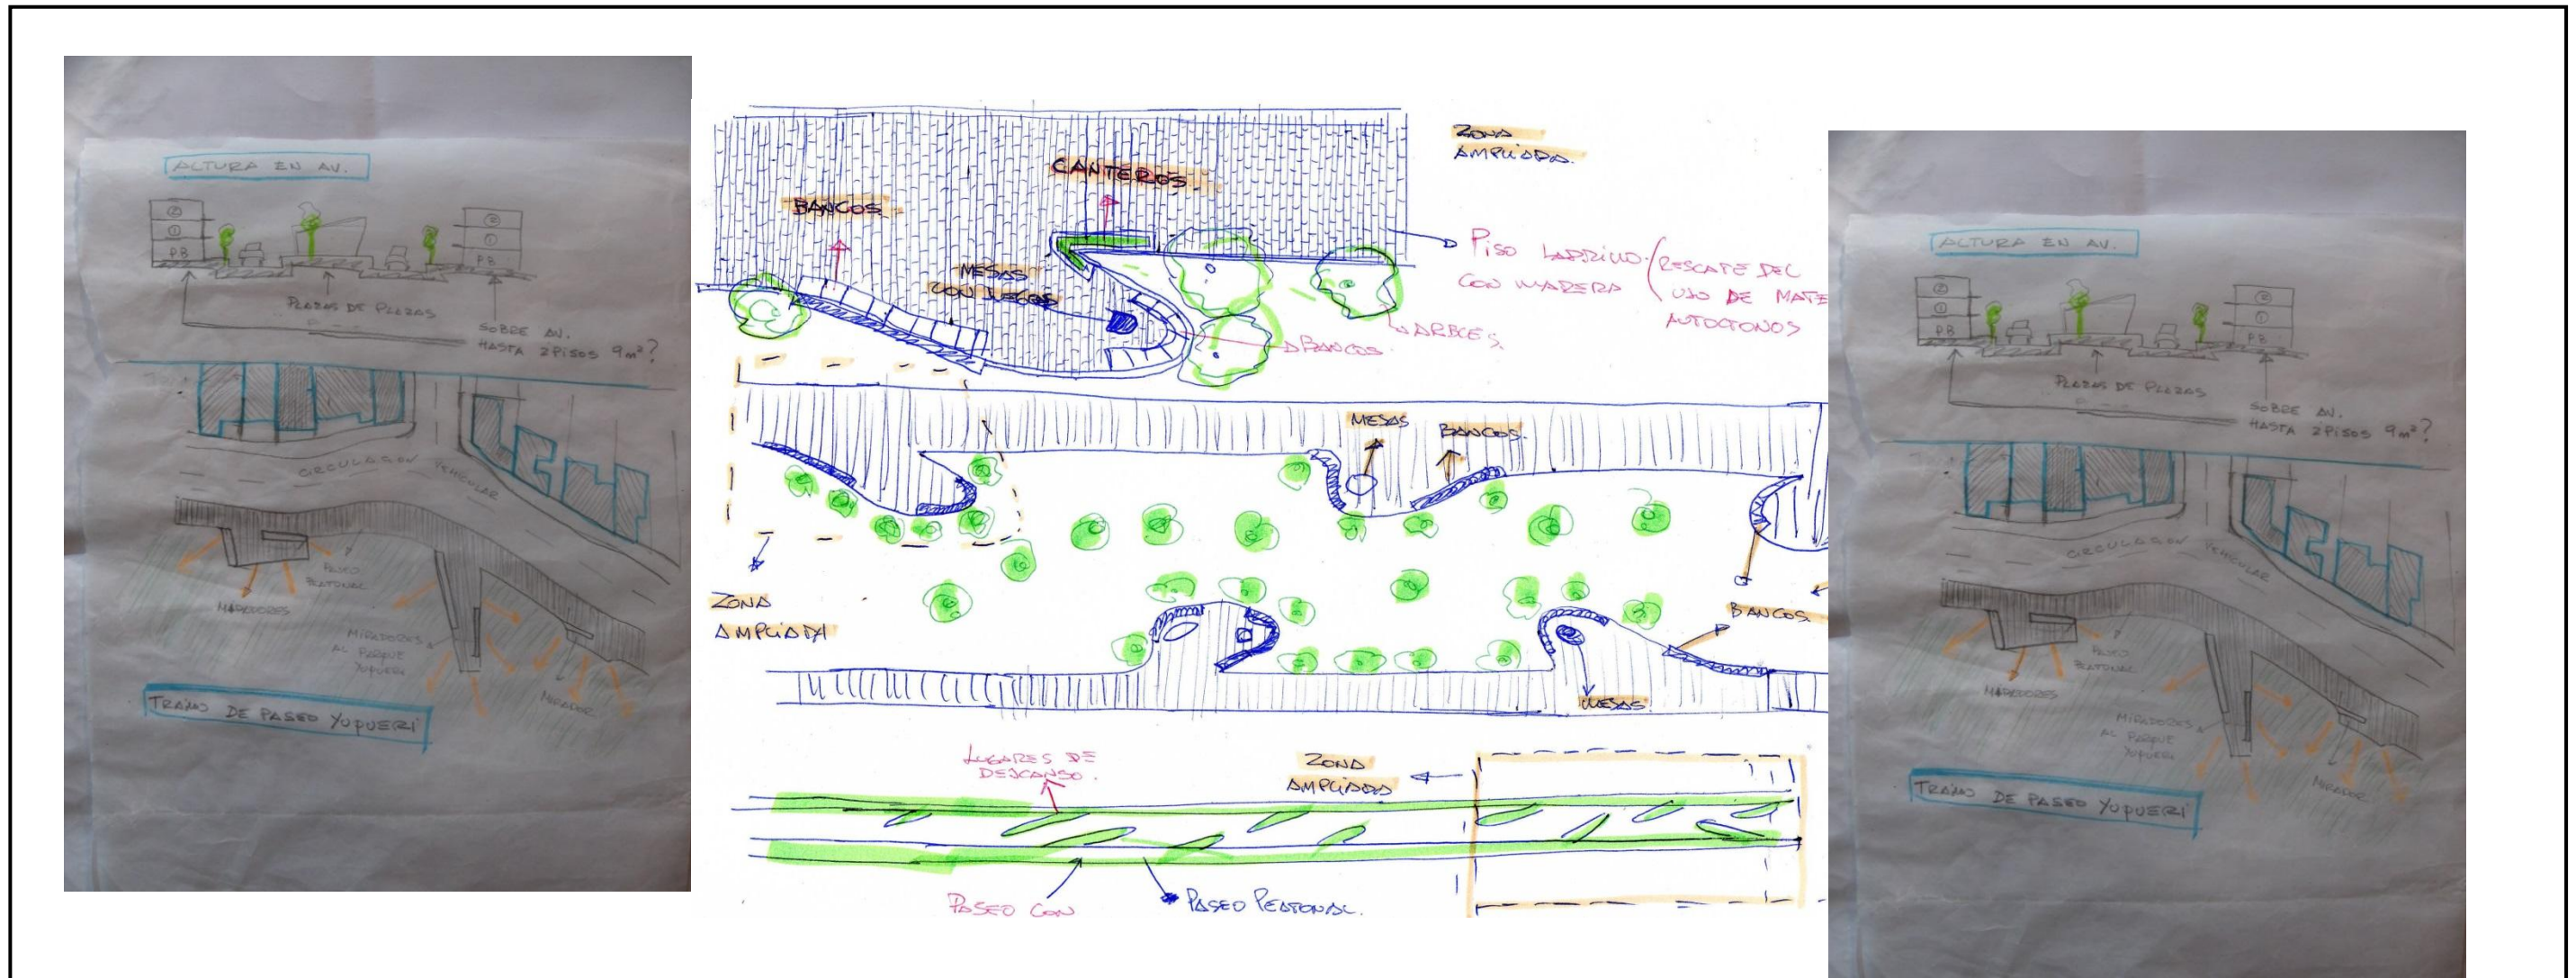 ALTURA EN AV.
2
1
P.B
2
1
P.B
PLAZAS DE PLAZAS
SOBRE AV.
HASTA 2 PISOS 9m²?
CIRCULACION VEHICULAR
PASEO
PEATONAL
MIRADORES
MIRADORES
AL PARQUE
YUPUERI
MIRADOR
TRAMO DE PASEO YUPUERI
ZONA
AMPLIADA.
CANTEROS.
BANCOS.
MESAS
CON JUEGOS
PISO LADRILLO
CON MADERA
(RESCATE DEL
USO DE MATE
AUTOCTONOS
BANCOS.
ARBOLES.
MESAS
BANCOS.
ZONA
AMPLIADA
BANCOS.
MESAS.
LUGARES DE
DESCANSO.
ZONA
AMPLIADA
PASEO CON
PASEO PEATONAL.
ALTURA EN AV.
2
1
P.B
2
1
P.B
PLAZAS DE PLAZAS
SOBRE AV.
HASTA 2 PISOS 9m²?
CIRCULACION VEHICULAR
PASEO
PEATONAL
MIRADORES
MIRADORES
AL PARQUE
YUPUERI
MIRADOR
TRAMO DE PASEO YUPUERI